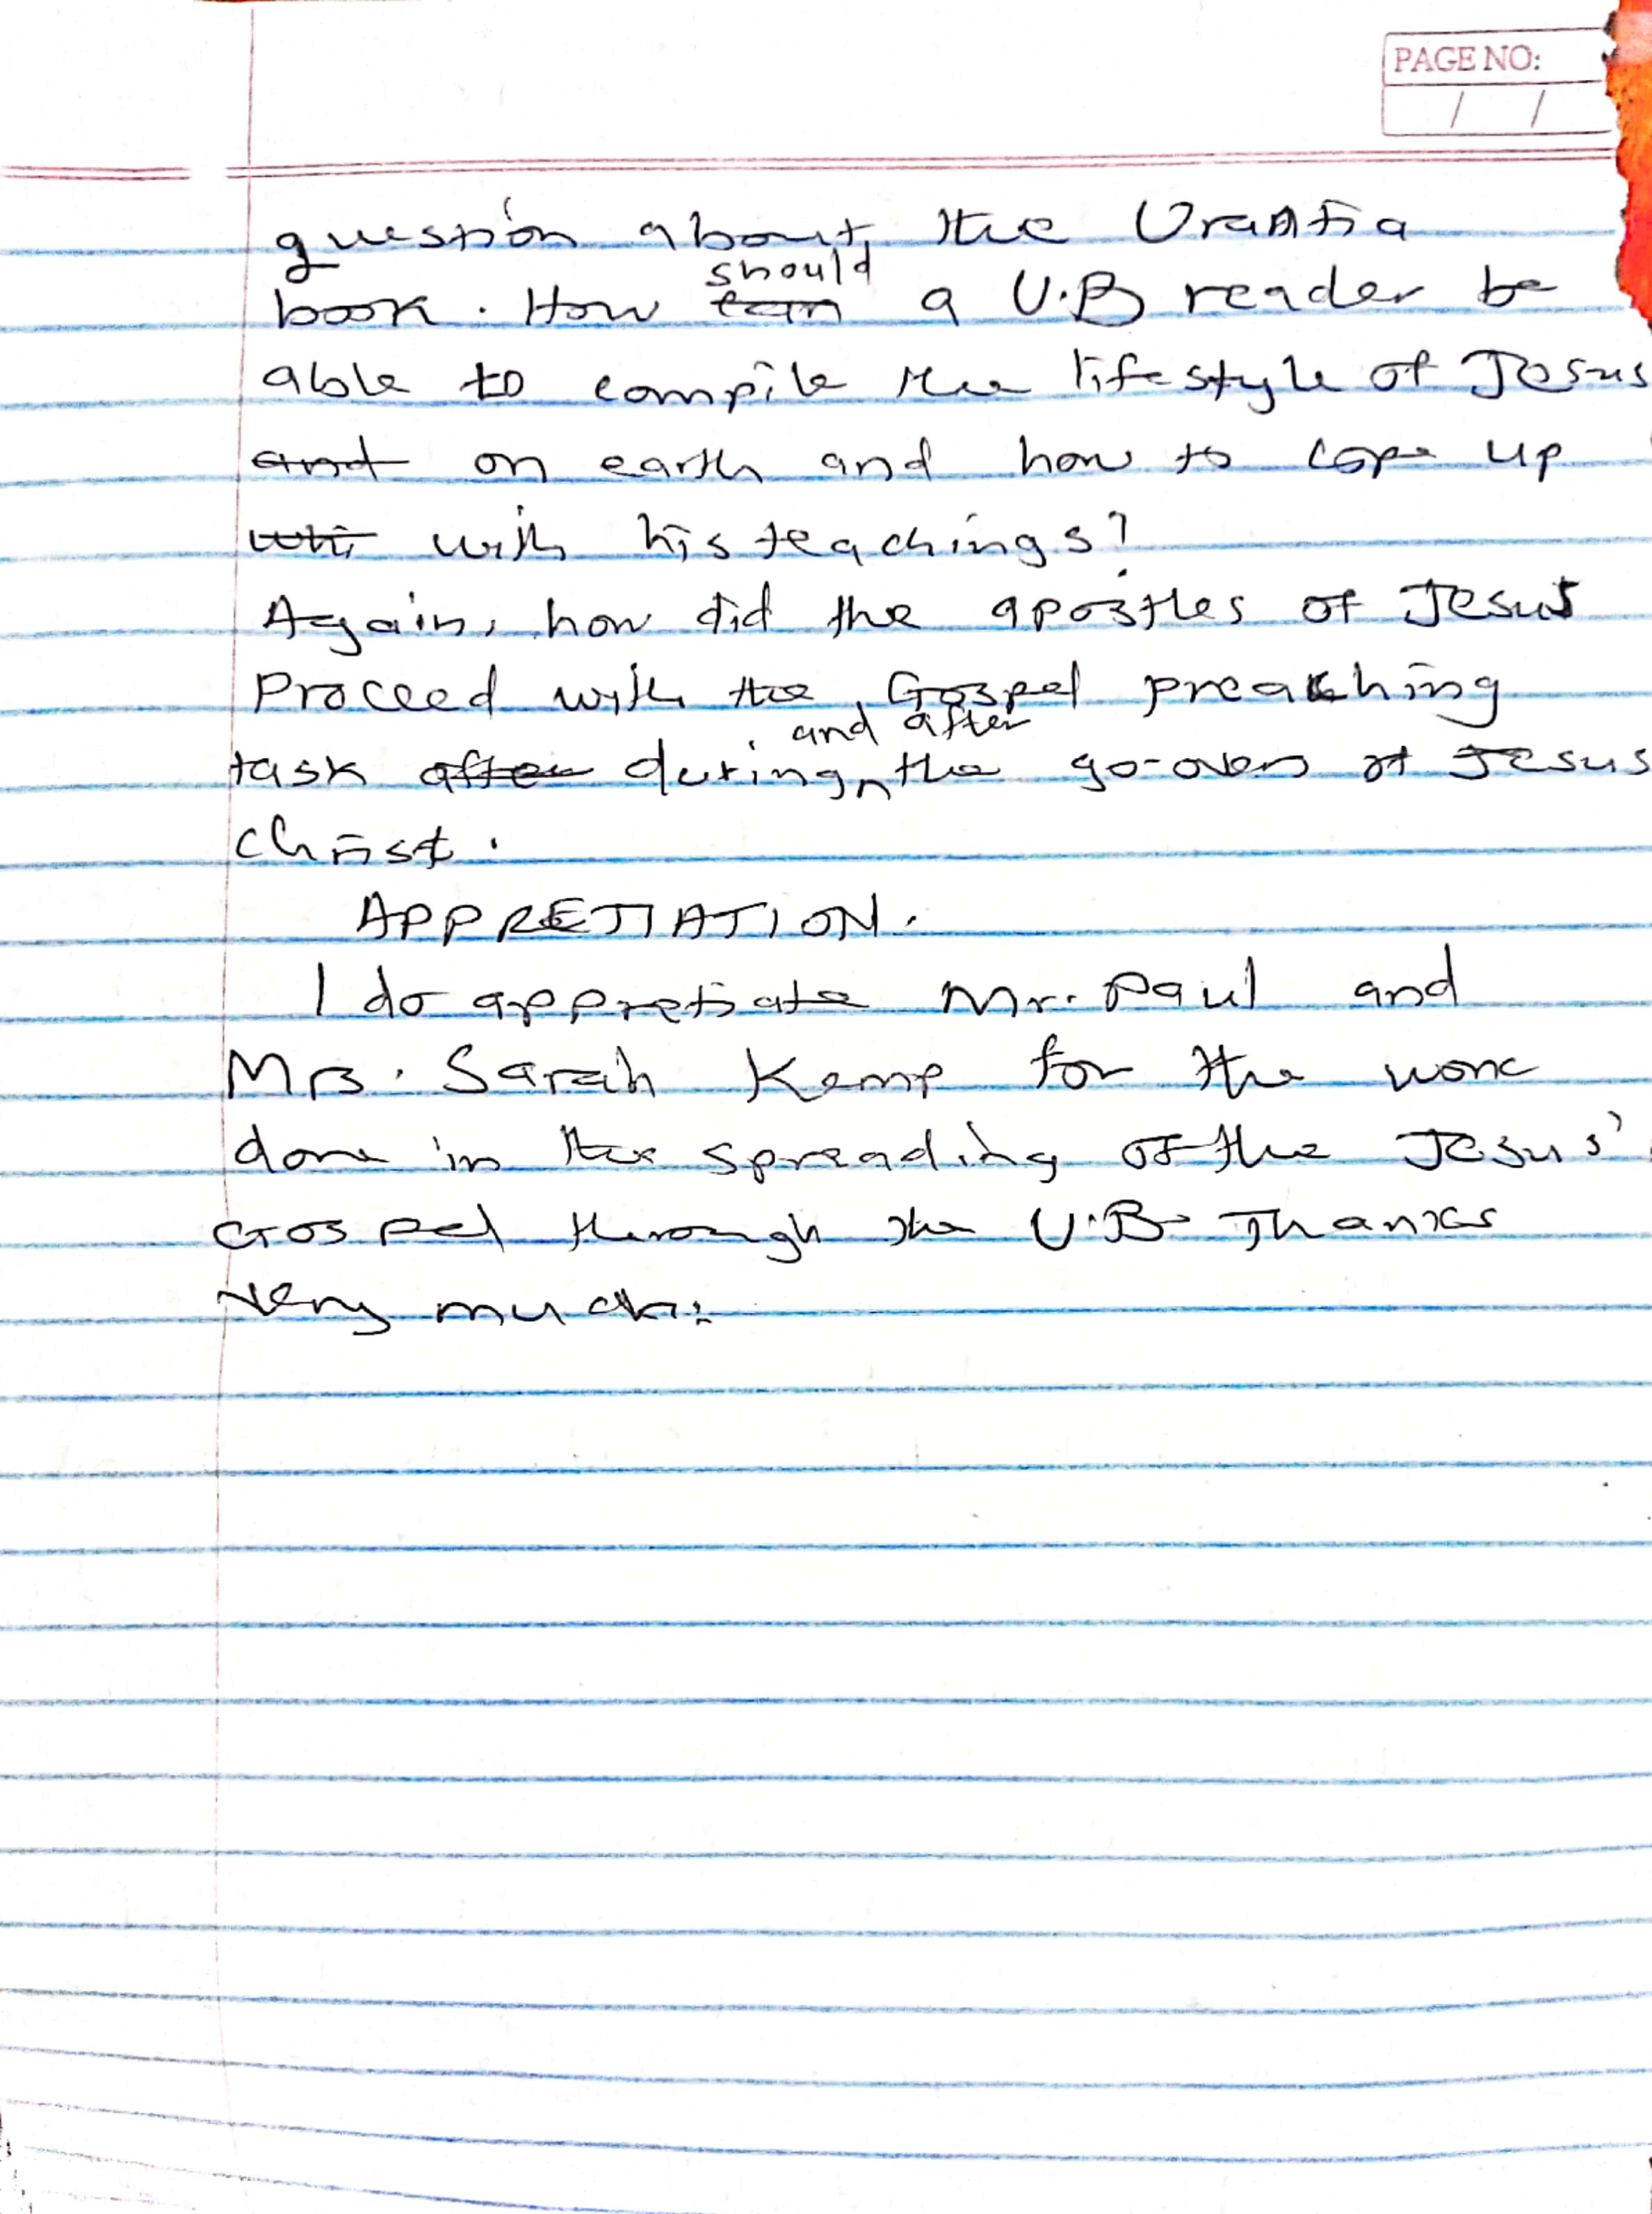 PAGE NO:
/ /
question about the Urantia
should
book. How can a U.B reader be
able to compile the lifestyle of Jesus
and on earth and how to cope up
whi with his teachings?
Again, how did the apostles of Jesus
Proceed with the Gospel preaching
and after
task after during the go-over of Jesus
Christ.
APPRETIATION.
I do appretiate Mr. Paul and
Mrs. Sarah Kemp for the work
done in the spreading of the Jesus'
Gospel through the U.B. Thanks
very much.